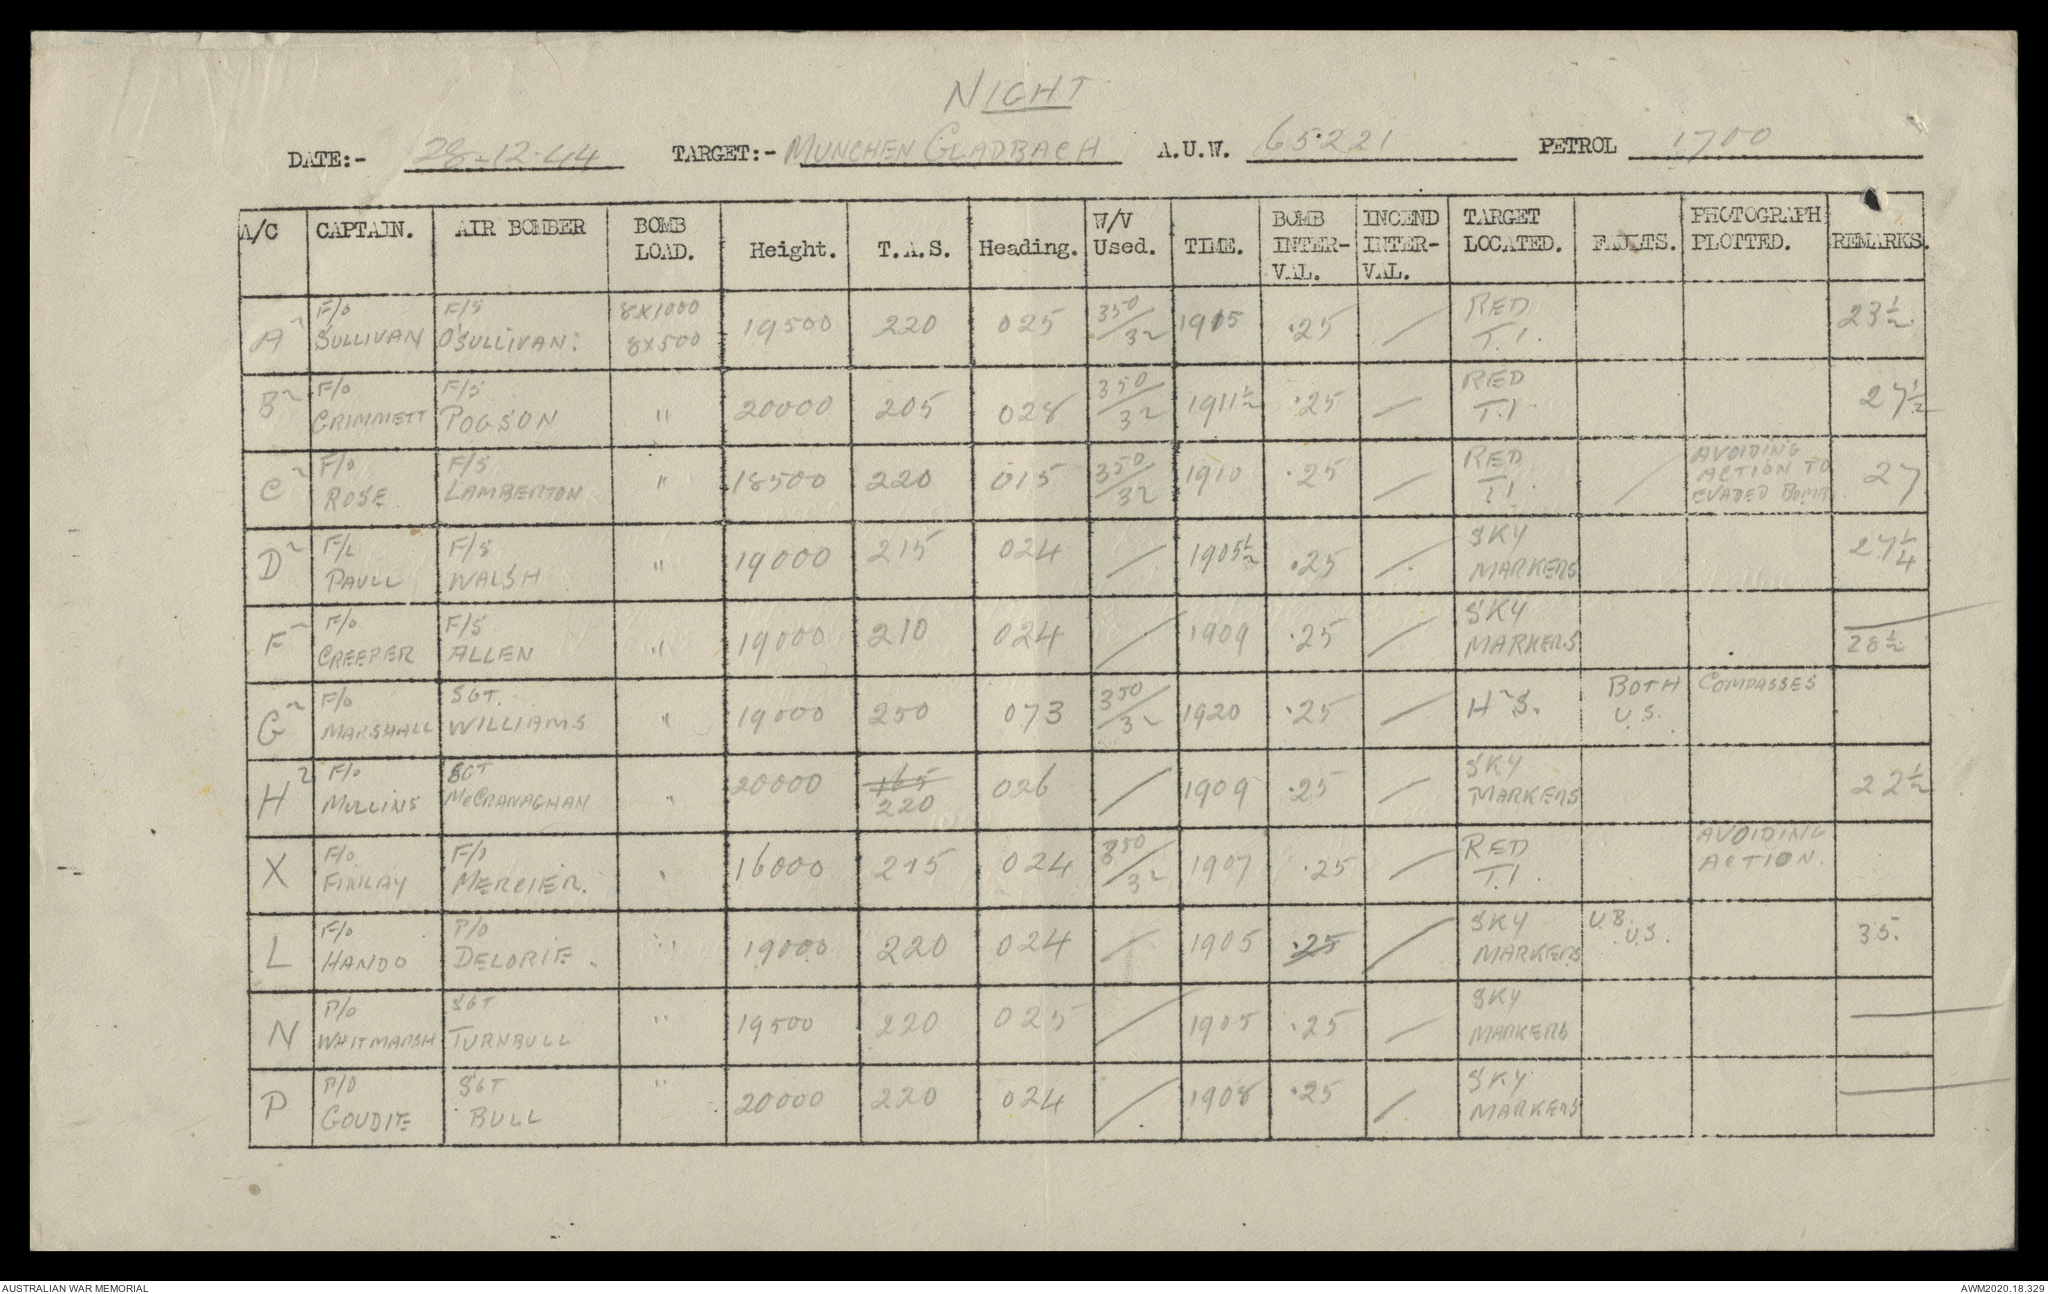 NIGHT
DATE:- 28-12-44 TARGET:- MUNCHEN GLADBACH A.U.W. 65221 PETROL 1700
A/C CAPTAIN. AIR BOMBER BOMB LOAD. Height. T.A.S. Heading. W/V Used. TIME. BOMB INTER-VAL. INCEND INTER-VAL. TARGET LOCATED. FAULTS. PHOTOGRAPH PLOTTED. REMARKS.
A2 F/O SULLIVAN F/S O'SULLIVAN. 8X1000 8X500 19500 220 025 350/32 1915 .25 / RED T.I. 23½
B2 F/O GRIMMETT F/S POGSON " 20000 205 028 350/32 1911½ .25 / RED T.I. 27½
C2 F/O ROSE F/S LAMBERTON " 18500 220 015 350/32 1910 .25 / RED T.I. / AVOIDING ACTION TO EVADED BOMB. 27
D2 F/L PAULL F/S WALSH " 19000 215 024 / 1905½ .25 / SKY MARKERS 27¼
F2 F/O CREEPER F/S ALLEN " 19000 210 024 / 1909 .25 / SKY MARKERS 28½
G2 F/O MARSHALL SGT. WILLIAMS " 19000 250 073 350/32 1920 .25 / H2S. BOTH COMPASSES U.S.
H2 F/O MULLINS SGT McCRANAGHAN " 20000 165 220 026 / 1909 .25 / SKY MARKERS 22½
X F/O FINLAY F/O MERCIER. " 16000 215 024 350/32 1907 .25 / RED T.I. AVOIDING ACTION.
L F/O HANDO P/O DELORIE. " 19000 220 024 / 1905 .25 / SKY MARKERS U.B. U.S. 35.
N P/O WHITMARSH SGT TURNBULL " 19500 220 025 / 1905 .25 / SKY MARKERS
P P/O GOUDIE SGT BULL " 20000 220 024 / 1908 .25 / SKY MARKERS
AUSTRALIAN WAR MEMORIAL AWM2020.18.329